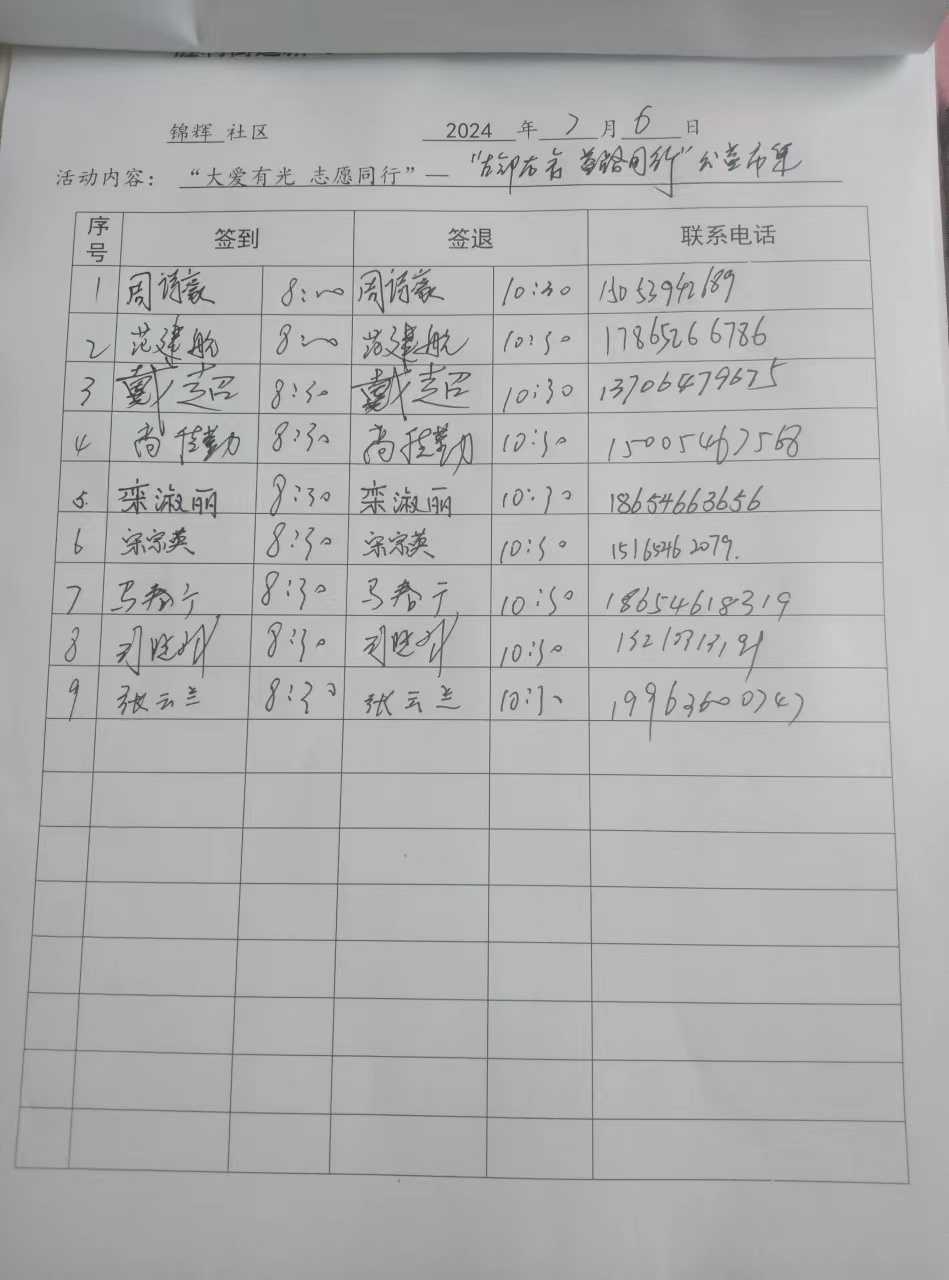 锦辉 社区 2024 年 7 月 6 日
活动内容： “大爱有光 志愿同行”— “左邻右舍 首路同行” 公益市集
序号 签到 签退 联系电话
1 周诗豪 8:00 周诗豪 10:30 15053942689
2 范建航 8:00 范建航 10:30 17865266786
3 戴超 8:30 戴超 10:30 13706479675
4 尚佳勤 8:30 尚佳勤 10:30 15005467568
5. 栾淑丽 8:30 栾淑丽 10:30 18654663656
6 宋宗英 8:30 宋宗英 10:30 15165462079.
7 马春宁 8:30 马春宁 10:30 18654618319
8 8:30 10:30
9 张云兰 8:30 张云兰 10:30 19963600747